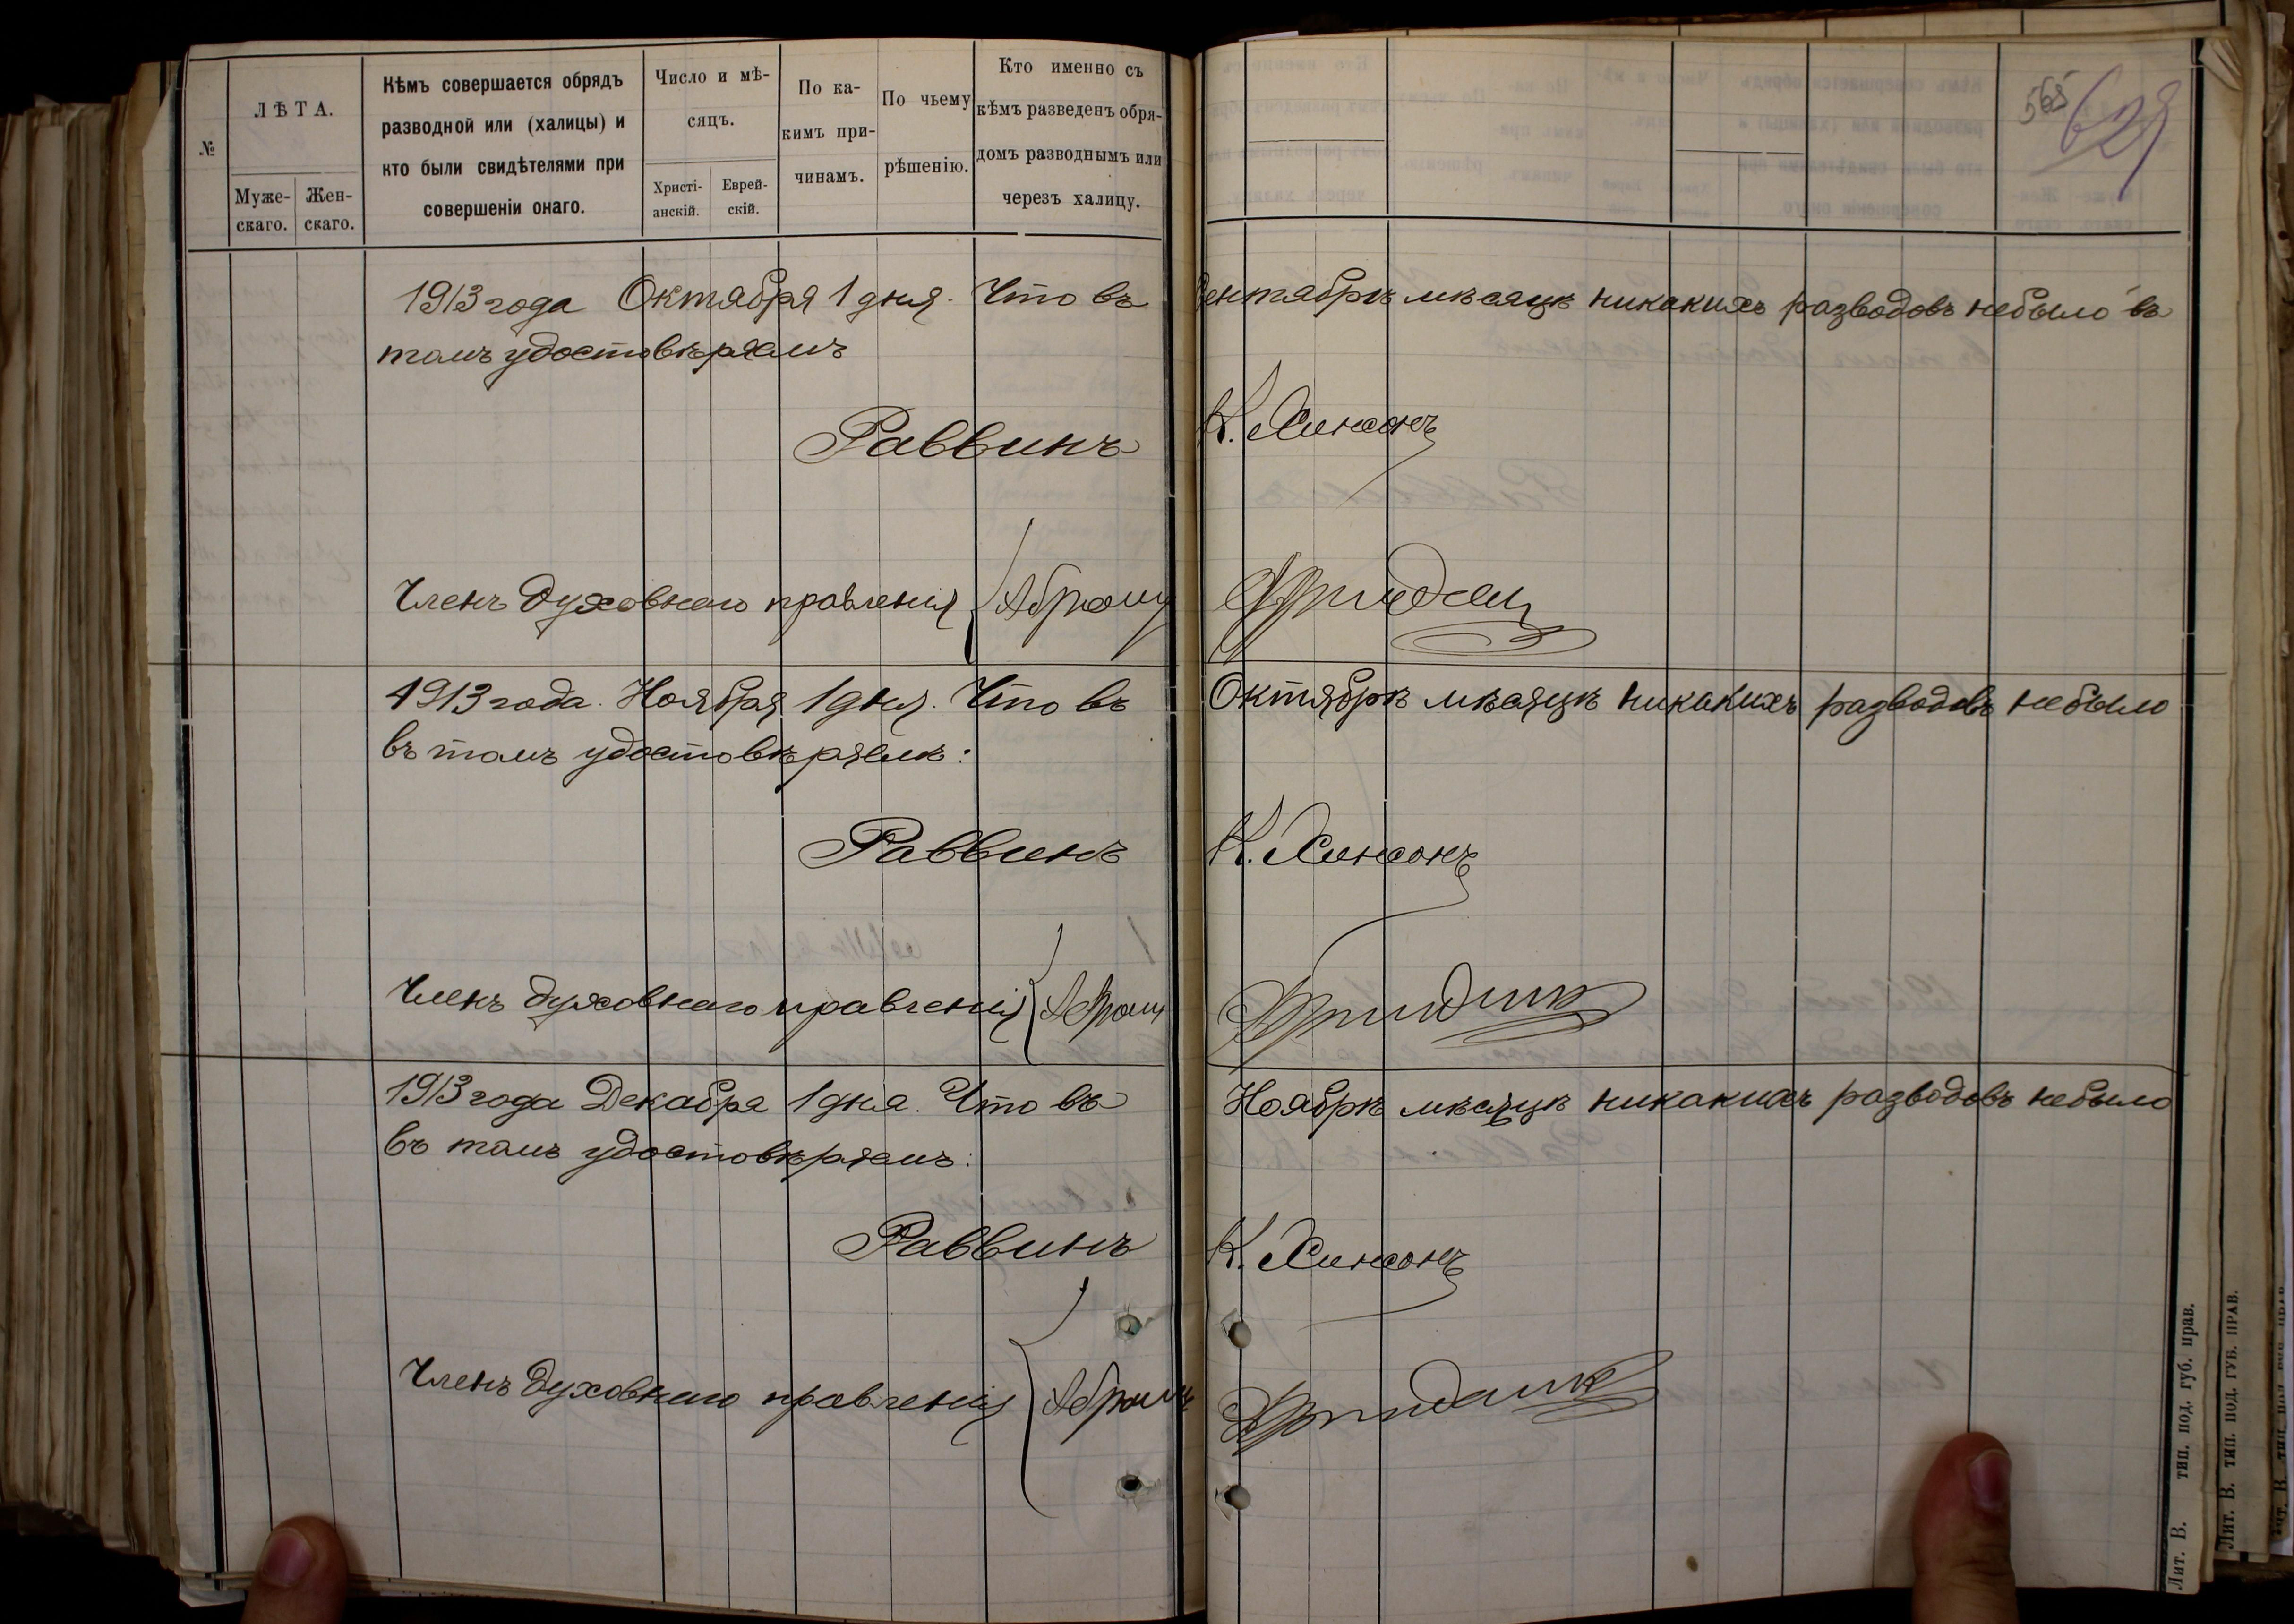 №
ЛѢТА.
Муже-
скаго.
Жен-
скаго.
Кѣмъ совершается обрядъ
разводной или (халицы) и
кто были свидѣтелями при
совершеніи онаго.
Число и мѣ-
сяцъ.
Христі-
анскій.
Еврей-
скій.
По ка-
кимъ при-
чинамъ.
По чьему
рѣшенію.
Кто именно съ
кѣмъ разведенъ обря-
домъ разводнымъ или
черезъ халицу.
565 629
1913 года Октября 1 дня. Что въ Сентябрѣ мѣсяцѣ никакихъ разводовъ небыло въ
томъ удостовѣряемъ
Раввинъ К.
Членъ духовнаго правленія Абрамъ
1913 года. Ноября 1 дня. Что въ Октябрѣ мѣсяцѣ никакихъ разводовъ небыло
въ томъ удостовѣряемъ:
Раввинъ К.
Членъ духовнаго правленія Абрамъ
1913 года Декабря 1 дня. Что въ Ноябрѣ мѣсяцѣ никакихъ разводовъ небыло
въ томъ удостовѣряемъ:
Раввинъ К.
Членъ духовнаго правленія Абрамъ
Лит. В. тип. под. губ. прав.
Лит. В. тип. под. губ. прав.